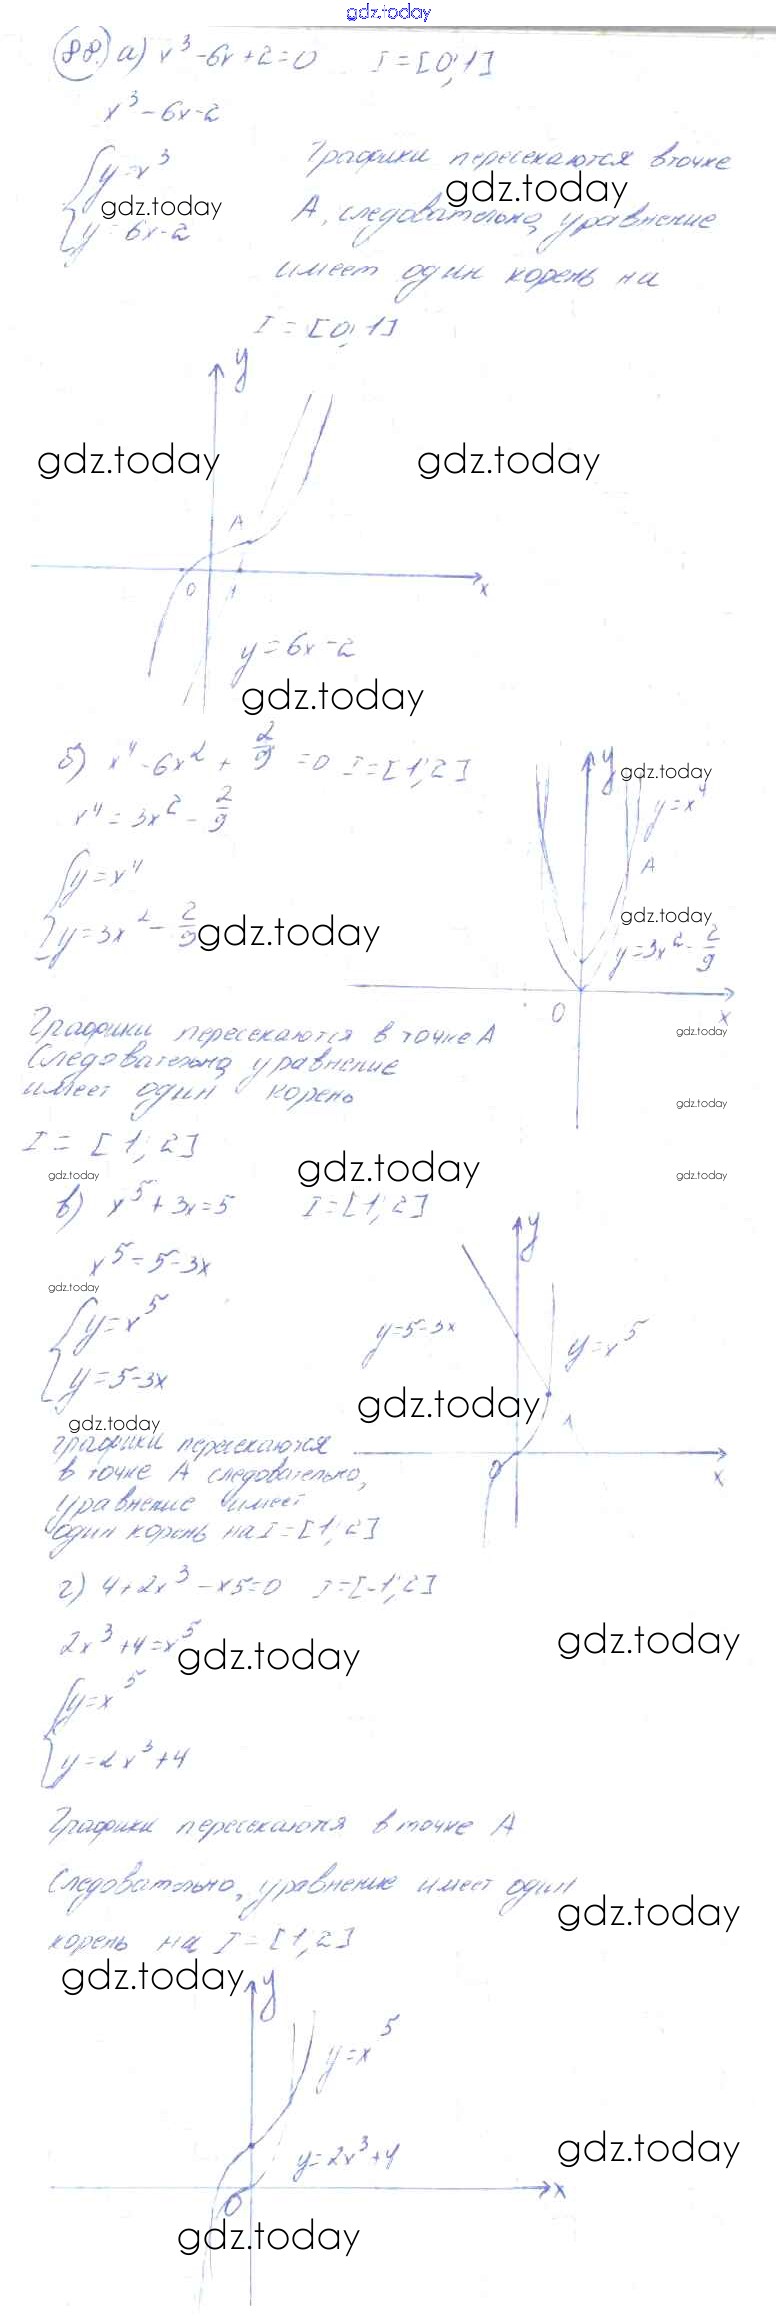 gdz.today
88. а) x³ - 6x + 2 = 0 I = [0; 1]
x³ - 6x - 2
y = x³
y = 6x - 2
Графики пересекаются в точке
А, следовательно, уравнение
имеет один корень на
I = [0; 1]
gdz.today
gdz.today
y
gdz.today
gdz.today
A
0
1
x
y = 6x - 2
gdz.today
б) x⁴ - 6x² + 2/9 = 0 I = [1; 2]
x⁴ = 3x² - 2/9
y = x⁴
y = 3x² - 2/9
gdz.today
y
gdz.today
y = x⁴
A
gdz.today
y = 3x² - 2/9
0
x
gdz.today
gdz.today
Графики пересекаются в точке А
Следовательно, уравнение
имеет один корень
I = [1; 2]
gdz.today
gdz.today
gdz.today
в) x⁵ + 3x = 5 I = [1; 2]
x⁵ = 5 - 3x
gdz.today
y = x⁵
y = 5 - 3x
y
y = 5 - 3x
y = x⁵
gdz.today
A
0
x
gdz.today
Графики пересекаются
в точке А следовательно,
уравнение имеет
один корень на I = [1; 2]
г) 4 + 2x³ - x5 = 0 I = [-1; 2]
2x³ + 4 = x⁵
gdz.today
gdz.today
y = x⁵
y = 2x³ + 4
Графики пересекаются в точке А
Следовательно, уравнение имеет один
корень на I = [1; 2]
gdz.today
gdz.today
y
y = x⁵
y = 2x³ + 4
gdz.today
0
x
gdz.today